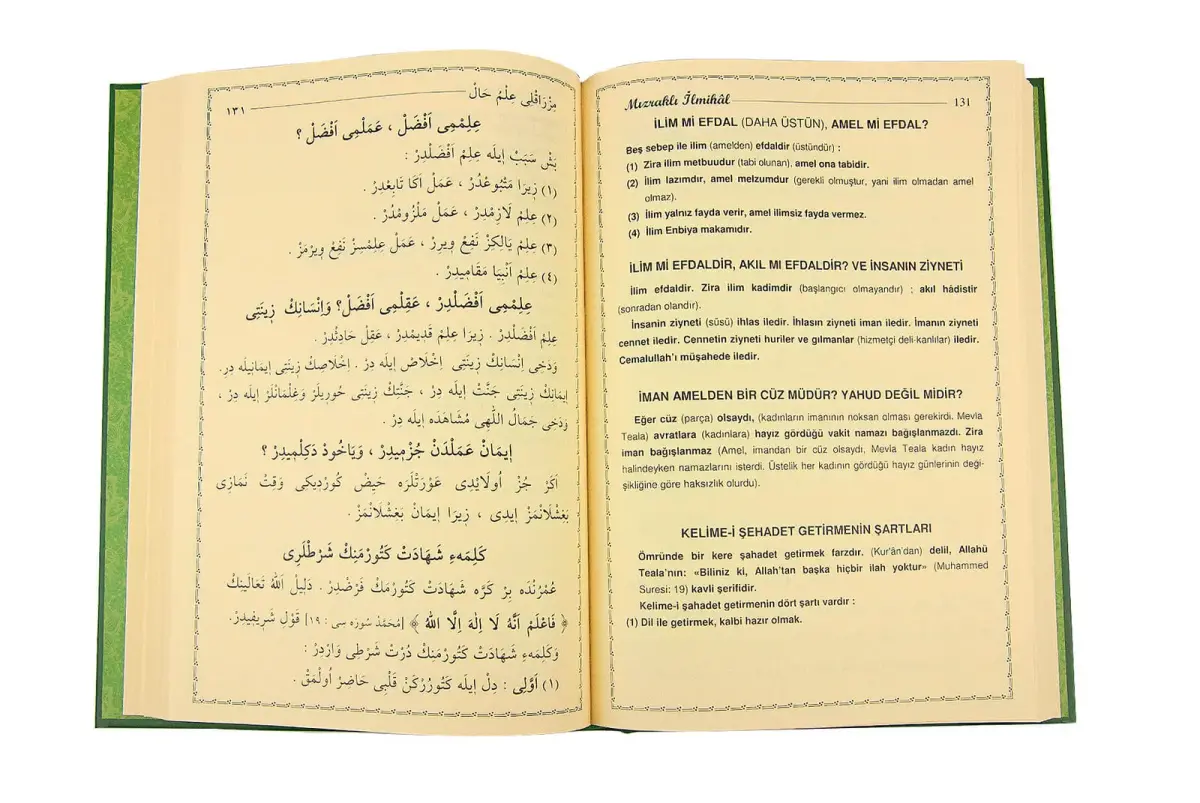 مِزْرَاقْلِى عِلْمُ حَالْ
١٣١
عِلِمْمِى اَفْضَلْ ، عَمَلْمِى اَفْضَلْ ؟
بَشْ سَبَبْ اِيلَه عِلِمْ اَفْضَلْدِرْ :
(١) زِيرَا مَتْبُوعْدُرْ ، عَمَلْ اَكَا تَابِعْدِرْ .
(٢) عِلِمْ لَازِمْدِرْ ، عَمَلْ مَلْزُومْدُرْ .
(٣) عِلِمْ يَالِكِزْ نَفِعْ وِيرِرْ ، عَمَلْ عِلِمْسِزْ نَفِعْ وِيرْمَزْ .
(٤) عِلِمْ اَنْبِيَا مَقَامِيدِرْ .
عِلِمْمِى اَفْضَلْدِرْ ، عَقِلْمِى اَفْضَلْ؟ وَاِنْسَانِكْ زِينَتِى
عِلِمْ اَفْضَلْدِرْ . زِيرَا عِلِمْ قَدِيمْدِرْ ، عَقِلْ حَادِثْدِرْ .
وَدَخِى اِنْسَانِكْ زِينَتِى اِخْلَاصْ اِيلَه دِرْ . اِخْلَاصِكْ زِينَتِى اِيمَانِيلَه دِرْ .
اِيمَانِكْ زِينَتِى جَنَّتْ اِيلَه دِرْ ، جَنَّتِكْ زِينَتِى حُورِيلَرْ وَغِلْمَانْلَرْ اِيلَه دِرْ ،
وَدَخِى جَمَالُ اللّٰهِى مُشَاهَدَه اِيلَه دِرْ .
اِيمَانْ عَمَلْدَنْ جُزْمِيدِرْ ، وَيَاخُودْ دَكِلْمِيدِرْ ؟
اَكَرْ جُزْ اُولَايْدِى عَوْرَتْلَرَه حَيْضْ كُورْدِيكِى وَقِتْ نَمَازِى
بَغِشْلَانْمَزْ اِيدِى ، زِيرَا اِيمَانْ بَغِشْلَانْمَزْ .
كَلِمَهءِ شَهَادَتْ كَتُورْمَنِكْ شَرْطْلَرِى
عُمْرُنْدَه بِرْ كَرَّه شَهَادَتْ كَتُورْمَكْ فَرْضْدِرْ . دَلِيلْ اَللّٰهُ تَعَالَينِكْ
﴿ فَاعْلَمْ اَنَّهُ لَا اِلٰهَ اِلَّا اللّٰهُ ﴾ [مُحَمَّدْ سُورَه سِى : ١٩] قَوْلِ شَرِيفِيدِرْ.
وَكَلِمَهءِ شَهَادَتْ كَتُورْمَنِكْ دُرْتْ شَرْطِى وَارْدِرْ :
(١) اَوَّلِى : دِلْ اِيلَه كَتُورُرْكَنْ قَلْبِى حَاضِرْ اُولْمَقْ .
Mızraklı İlmihâl
131
İLİM Mİ EFDAL (DAHA ÜSTÜN), AMEL Mİ EFDAL?
Beş sebep ile ilim (amelden) efdaldir (üstündür) :
(1) Zira ilim metbuudur (tabi olunan), amel ona tabidir.
(2) İlim lazımdır, amel melzumdur (gerekli olmuştur, yani ilim olmadan amel
olmaz).
(3) İlim yalnız fayda verir, amel ilimsiz fayda vermez.
(4) İlim Enbiya makamıdır.
İLİM Mİ EFDALDİR, AKIL MI EFDALDİR? VE İNSANIN ZİYNETİ
İlim efdaldir. Zira ilim kadimdir (başlangıcı olmayandır) ; akıl hâdistir
(sonradan olandır).
İnsanin ziyneti (süsü) ihlas iledir. İhlasın ziyneti iman iledir. İmanın ziyneti
cennet iledir. Cennetin ziyneti huriler ve gılmanlar (hizmetçi deli-kanlılar) iledir.
Cemalullah'ı müşahede iledir.
İMAN AMELDEN BİR CÜZ MÜDÜR? YAHUD DEĞİL MİDİR?
Eğer cüz (parça) olsaydı, (kadınların imanının noksan olması gerekirdi. Mevla
Teala) avratlara (kadınlara) hayız gördüğü vakit namazı bağışlanmazdı. Zira
iman bağışlanmaz (Amel, imandan bir cüz olsaydı, Mevla Teala kadın hayız
halindeyken namazlarını isterdi. Üstelik her kadının gördüğü hayız günlerinin deği-
şikliğine göre haksızlık olurdu).
KELİME-İ ŞEHADET GETİRMENİN ŞARTLARI
Ömründe bir kere şahadet getirmek farzdır. (Kur'ân'dan) delil, Allahü
Teala'nın: «Biliniz ki, Allah'tan başka hiçbir ilah yoktur» (Muhammed
Suresi: 19) kavli şerifidir.
Kelime-i şehadet getirmenin dört şartı vardır :
(1) Dil ile getirmek, kalbi hazır olmak.